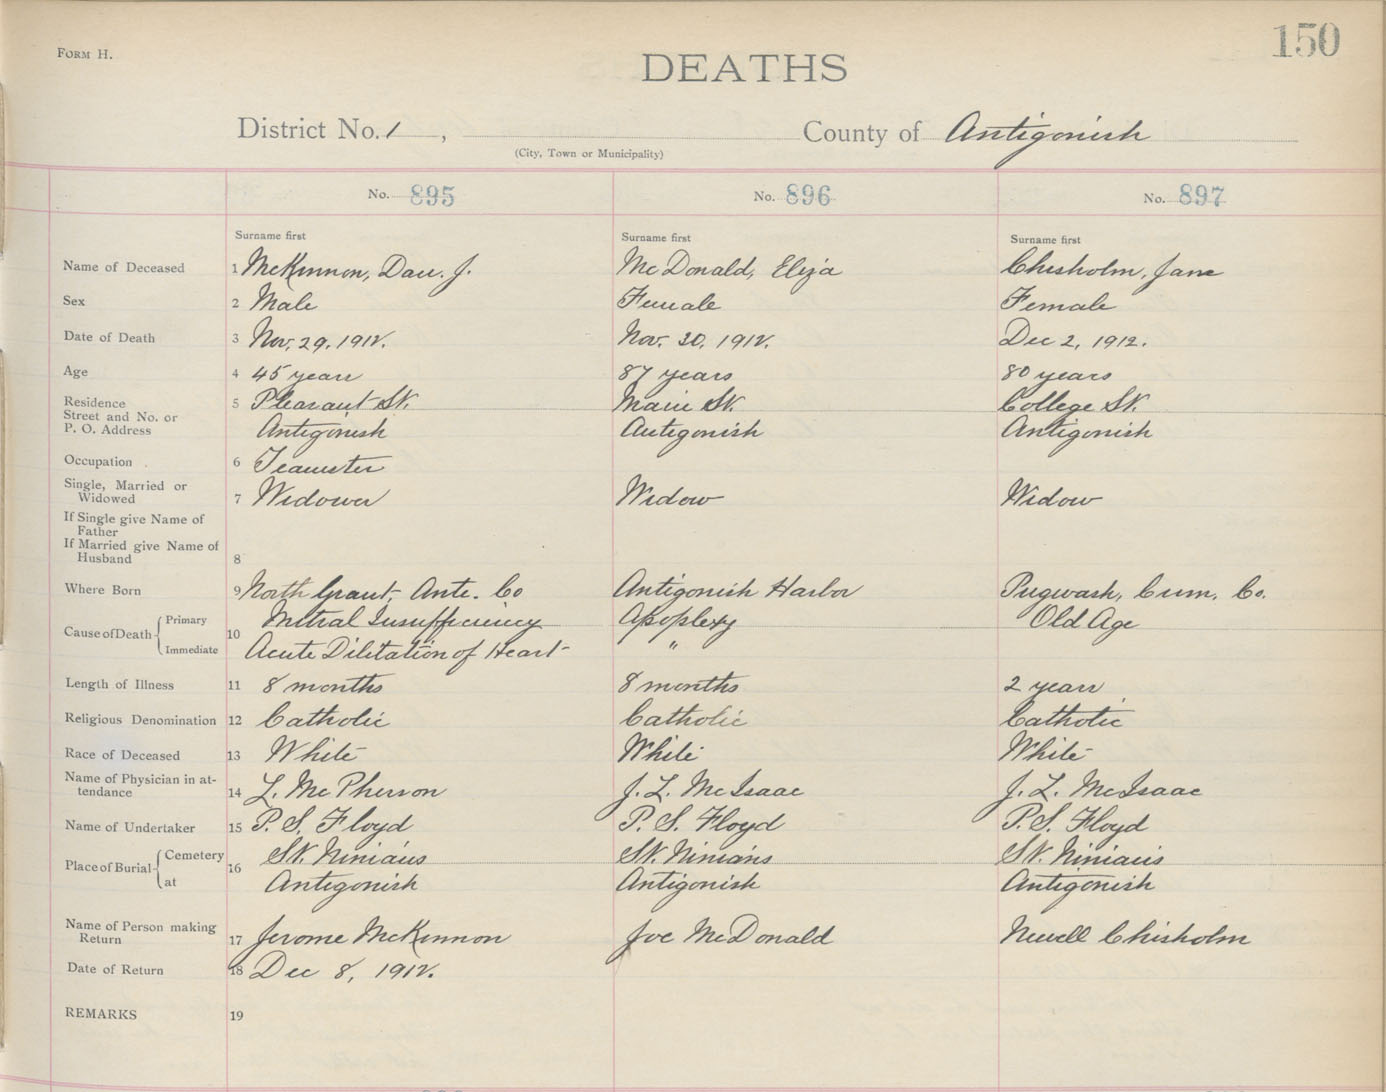 FORM H.
150
DEATHS
District No. 1 , County of Antigonish
(City, Town or Municipality)
No. 895 No. 896 No. 897
Surname first Surname first Surname first
Name of Deceased 1 McKinnon, Dan. J. McDonald, Eliza Chisholm, Jane
Sex 2 Male Female Female
Date of Death 3 Nov. 29, 1912. Nov. 30, 1912. Dec 2, 1912.
Age 4 45 years 87 years 80 years
Residence 5 Pleasant St. Main St. College St.
Street and No. or
P. O. Address Antigonish Antigonish Antigonish
Occupation 6 Teamster
Single, Married or
Widowed 7 Widower Widow Widow
If Single give Name of
Father
If Married give Name of
Husband 8
Where Born 9 North Grant, Ante. Co Antigonish Harbor Pugwash, Cum. Co.
Cause of Death Primary 10 Mitral Insufficiency Apoplexy Old Age
Immediate Acute Dilitation of Heart "
Length of Illness 11 8 months 8 months 2 years
Religious Denomination 12 Catholic Catholic Catholic
Race of Deceased 13 White White White
Name of Physician in at-
tendance 14 L. McPherson J. L. McIsaac J. L. McIsaac
Name of Undertaker 15 P. S. Floyd P. S. Floyd P. S. Floyd
Place of Burial Cemetery 16 St. Ninian's St. Ninian's St. Ninian's
at Antigonish Antigonish Antigonish
Name of Person making
Return 17 Jerome McKinnon Joe McDonald Newell Chisholm
Date of Return 18 Dec 8, 1912.
REMARKS 19